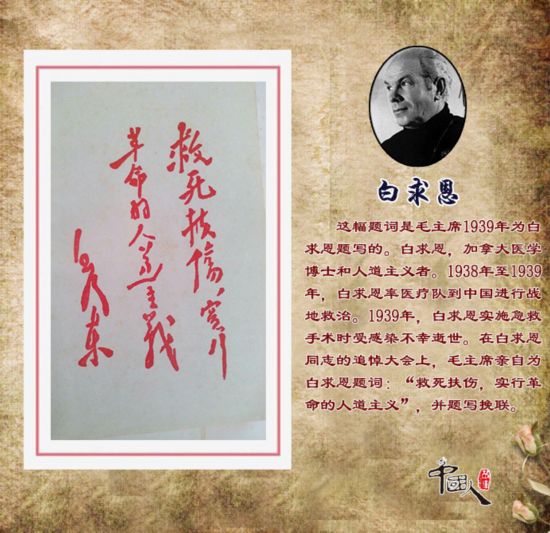 救死扶傷，實行
革命的人道主義
毛澤東
白求恩
这幅题词是毛主席1939年为白
求恩题写的。白求恩，加拿大医学
博士和人道主义者。1938年至1939
年，白求恩率医疗队到中国进行战
地救治。1939年，白求恩实施急救
手术时受感染不幸逝世。在白求恩
同志的追悼大会上，毛主席亲自为
白求恩题词：“救死扶伤，实行革
命的人道主义”，并题写挽联。
中國人